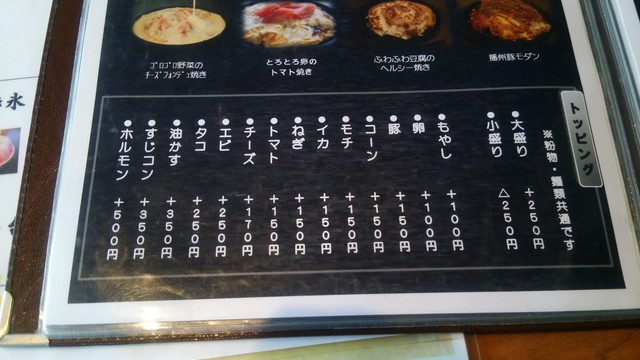 ゴロゴロ野菜の
チーズフォンデュ焼き
とろとろ卵の
トマト焼き
ふわふわ豆腐の
ヘルシー焼き
播州豚モダン
トッピング
※粉物・麺類共通です
●大盛り +250円
●小盛り △250円
●もやし +100円
●卵 +100円
●豚 +150円
●コーン +150円
●モチ +150円
●イカ +150円
●ねぎ +150円
●トマト +150円
●チーズ +170円
●エビ +250円
●タコ +250円
●油かす +350円
●すじコン +350円
●ホルモン +500円
氷